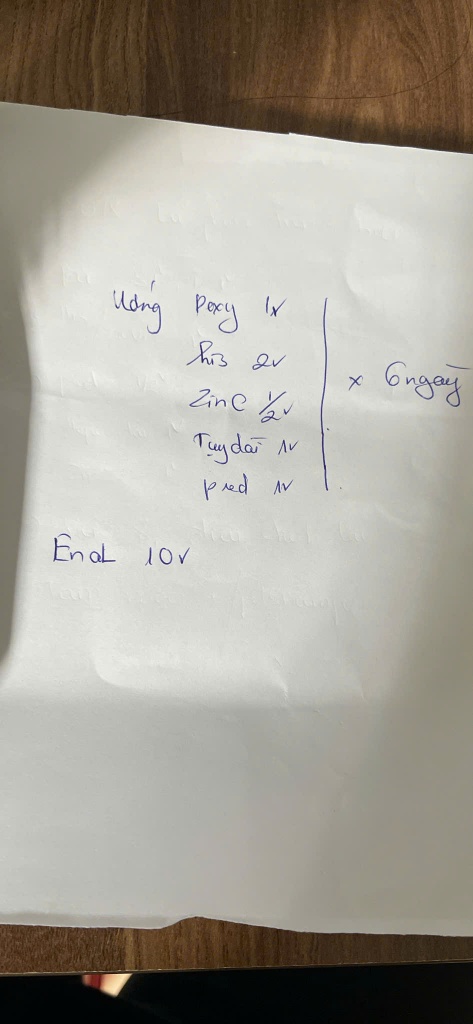 Uống Poxy 1v
his 2v
Zinc 1/2v
Tuy dài 1v
pred 1v
x 6 ngày
Enal 10v